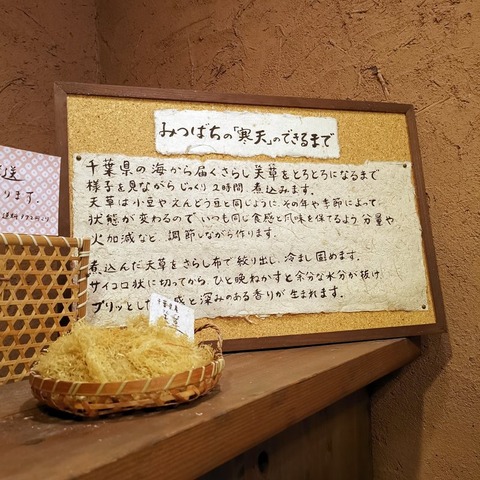 みつばちの「寒天」のできるまで
千葉県の海から届くさらし天草をとろとろになるまで
様子を見ながらじっくり2時間、煮込みます。
天草は小豆やえんどう豆と同じように、その年や季節によって
状態が変わるので いつも同じ食感と風味を保てるよう 分量や
火加減など、調節しながら作ります。
煮込んだ天草をさらし布で絞り出し、冷まし固めます。
サイコロ状に切ってから、ひと晩ねかすと余分な水分が抜け
プリッとした 感と深みのある香りが生まれます。
ります。
千葉県産
天草